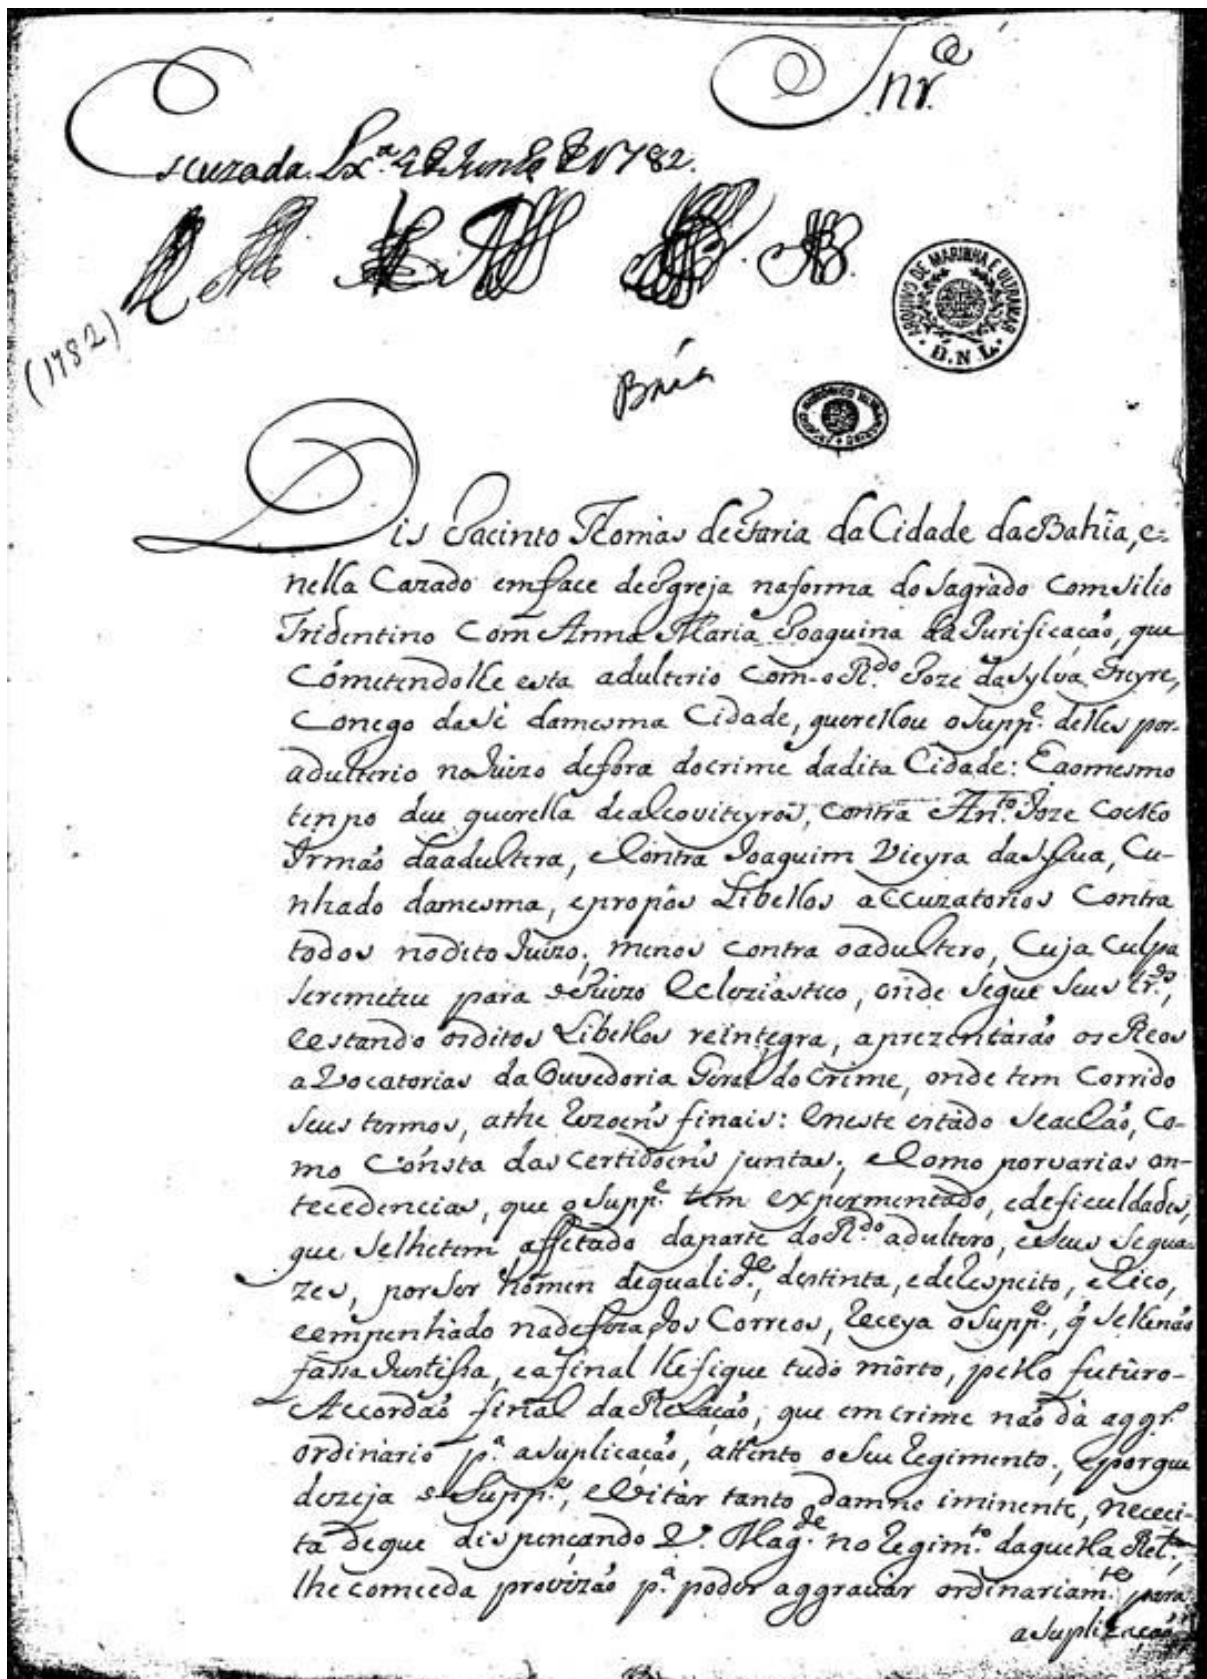 Snr.ª
Escuzada. Lx.ª 4 de Junho de 1782.
(1782)
ARQUIVO DE MARINHA E ULTRAMAR
B. N L.
Baía
Dis Jacinto Thomas de Faria da Cidade da Bahia, e=
nella Cazado em face de Igreja na forma do Sagrado Comsilio
Tridentino Com Anna Maria Joaquina da Purificação, que
Cómetendolhe esta adulterio com o R.do Joze da Sylva Freyre,
Conego da Sé da mesma Cidade, querellou o Supp.e delles por
adulterio no Juizo de fora do crime da dita Cidade: E ao mesmo
tenpo deu querella de alcoviteyros, contra Ant.º Joze Coelho
Irmão da adultera, e Contra Joaquim Vieyra da Sylua, Cu-
nhado da mesma, e propós Libellos accuzatorios Contra
todos no dito Juizo, menos contra o adultero, Cuja Culpa
se remeteu para o Juizo Ecleziastico, onde Segue Seus tr.os,
e estando os ditos Libellos reintegra, aprezentárão os Reos
aVocatorias da Ouvedoria Geral do Crime, onde tem Corrido
Seus termos, athe rezoens finais: E neste estado Se achão, Co-
mo Consta das Certidoens juntas; e Como por varias an-
tecedencias, que o Supp.e tem expermentado, e deficuldades,
que Se lhe tem affetado da parte do R.do adultero, e Seus Sequa-
zes, por Ser homen de qualid.e, destinta, e de respeito, e Rico,
e empenhado na defeza dos Correos, receya o Supp.e, q̃ Se lhe não
fassa Justissa, e a final lhe fique tudo mórto, pello futuro
Accordão final da Relação, que em crime não dá aggr.º
ordinario p.ª a Suplicação, attento o Seu regimento; e porque
dezeja o Supp.e, eVitár tanto damno iminente, nececi-
ta de que dispençando V. Mag.de no regim.to daquella Rel.am,
lhe comceda provizão p.ª poder aggravár ordinariam.te para
a Suplicação